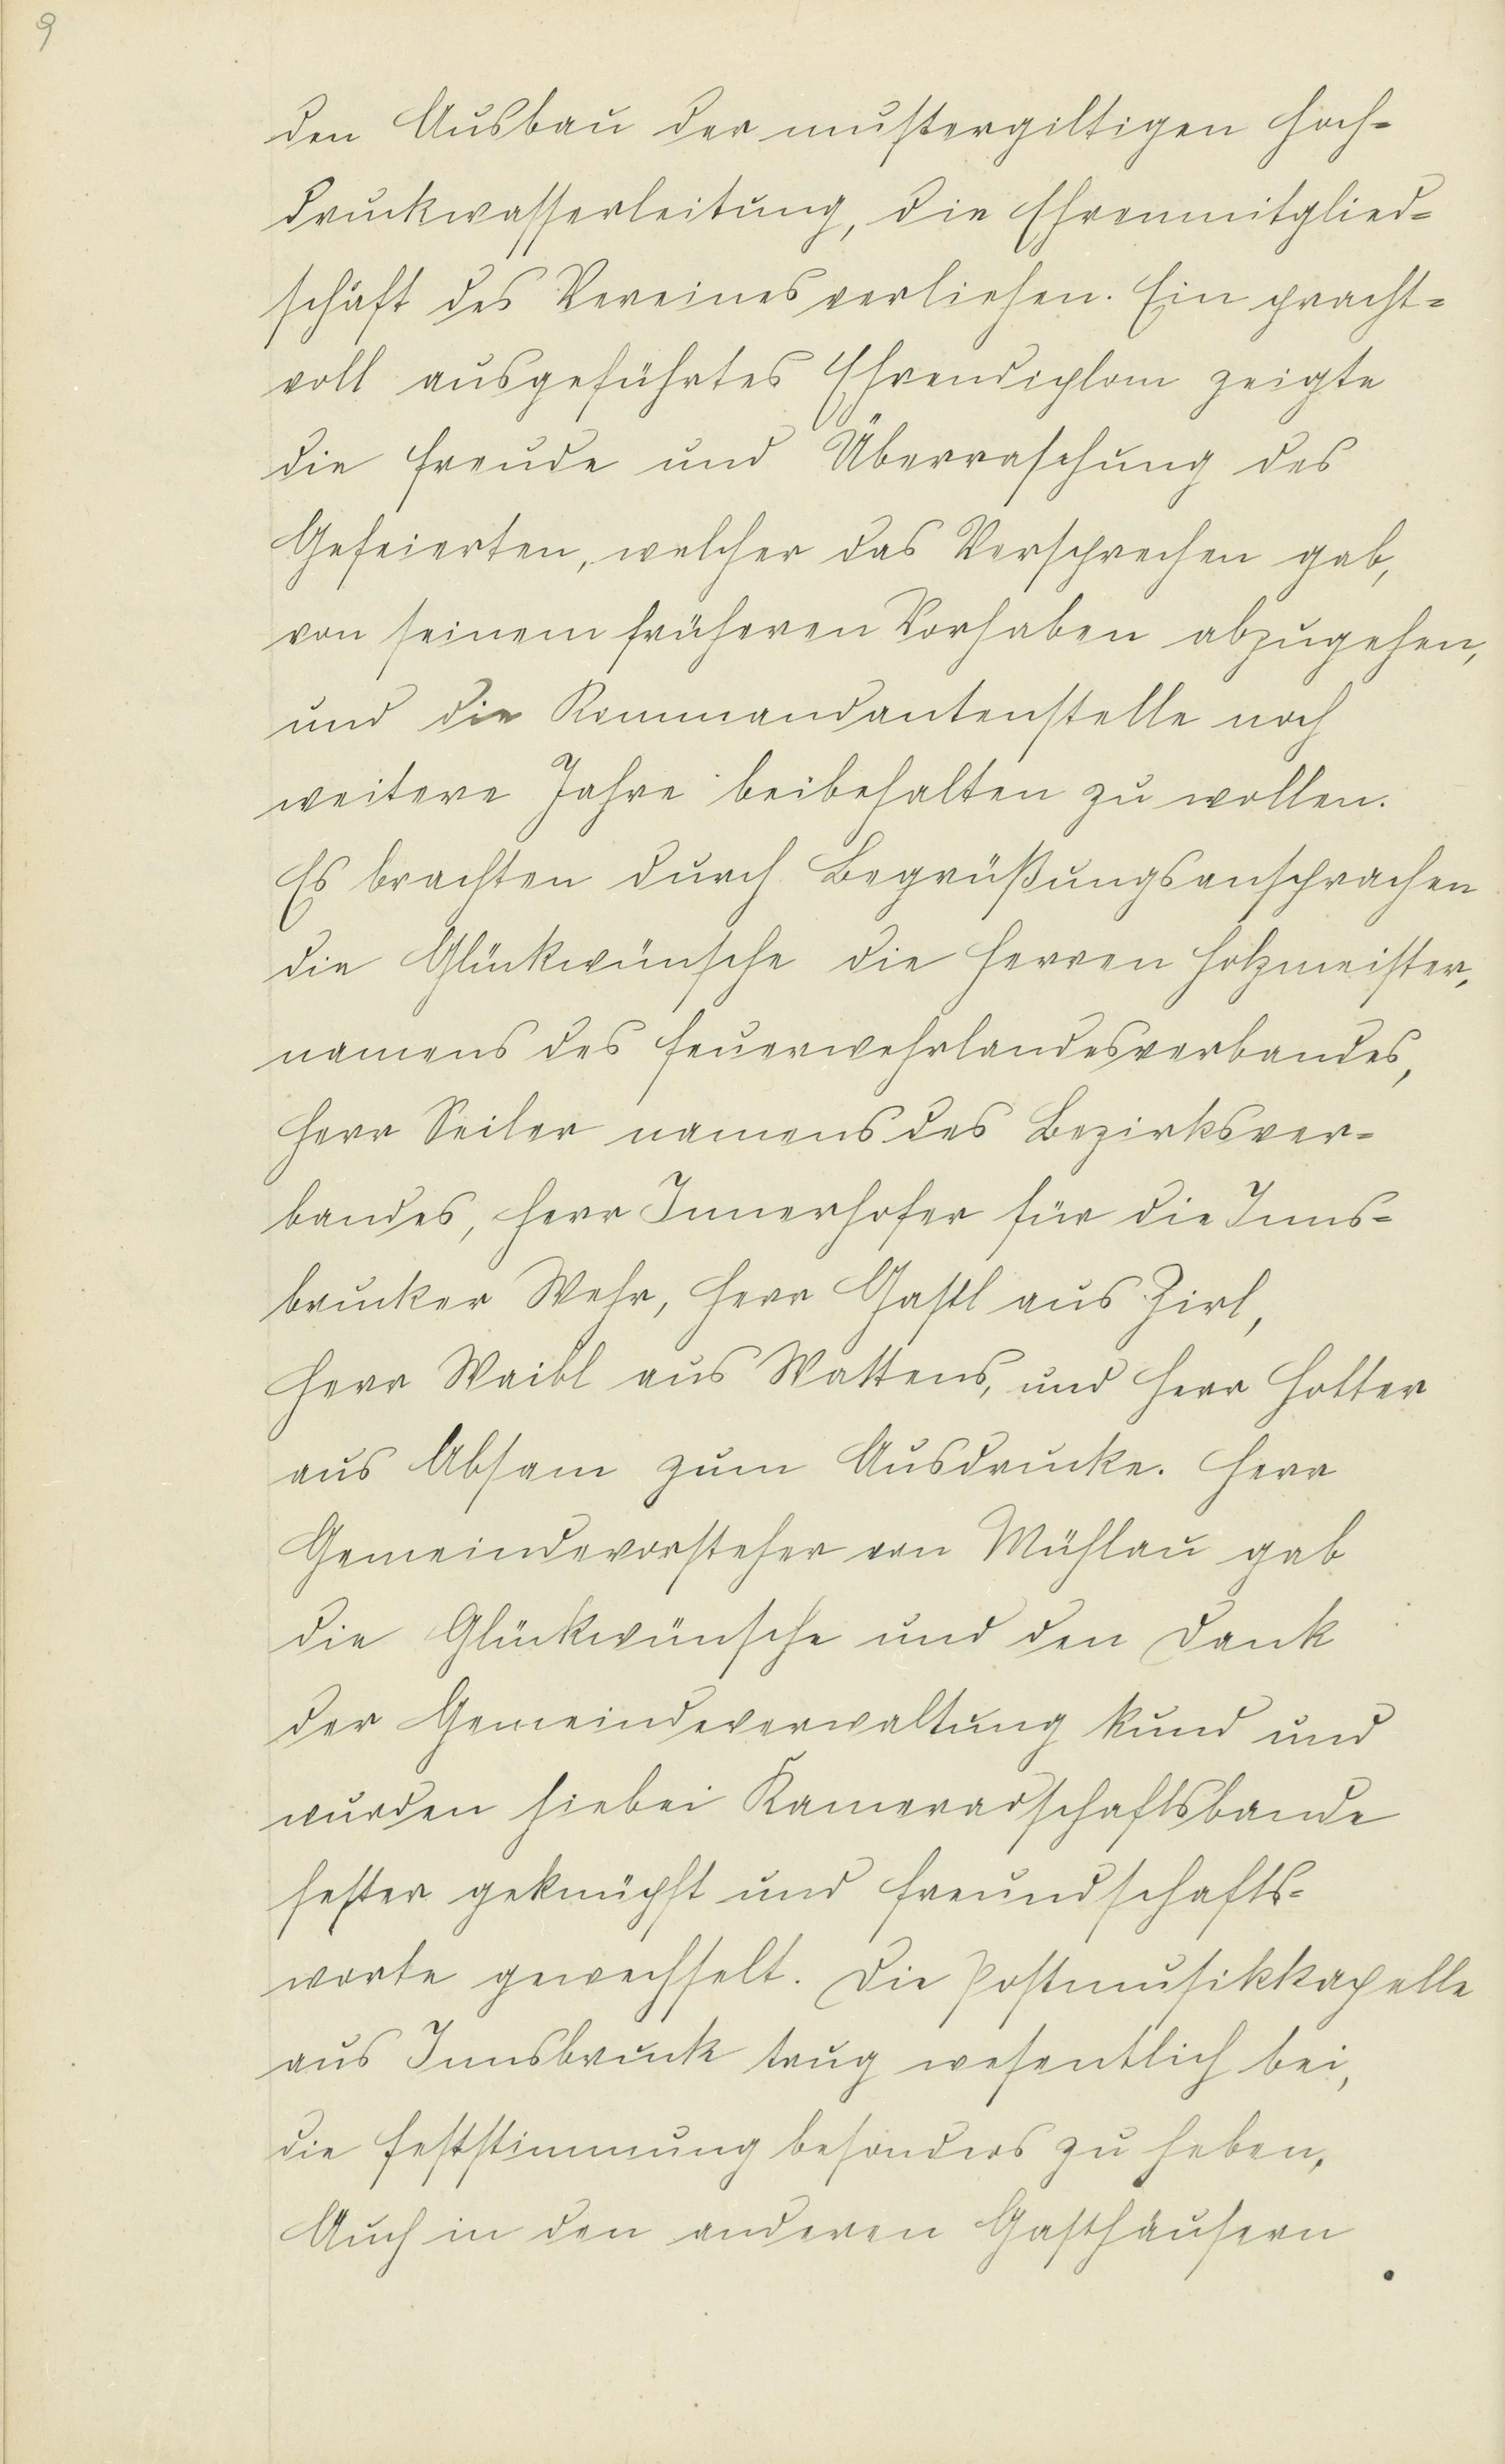 9
den Ausbau der mustergiltigen Hoch-
druckwasserleitung, die Ehrenmitglied-
schaft des Vereines verliehen. Ein pracht-
voll ausgeführtes Ehrendiplom zeigte
die Freude und Überraschung des
Gefeierten, welcher das Versprechen gab,
von seinem früheren Vorhaben abzugehen,
und die Kommandantenstelle noch
weitere Jahre beibehalten zu wollen.
Es brachten durch Begrüßungsansprachen
die Glückwünsche die Herren Holzmeister,
namens des Feuerwehrlandesverbandes,
Herr Seiler namens des Bezirksver-
bandes, Herr Innerhofer für die Inns-
brucker Wehr, Herr Gastl aus Zirl,
Herr Waibl aus Wattens, und Herr Holter
aus Absam zum Ausdrucke. Herr
Gemeindevorsteher von Mühlau gab
die Glückwünsche und den Dank
der Gemeindeverwaltung kund und
wurden hiebei Kameradschaftsbande
fester geknüpft und Freundschafts-
worte gewechselt. Die Postmusikkapelle
aus Innsbruck trug wesentlich bei,
die Feststimmung besonders zu heben,
Auch in den anderen Gasthäusern